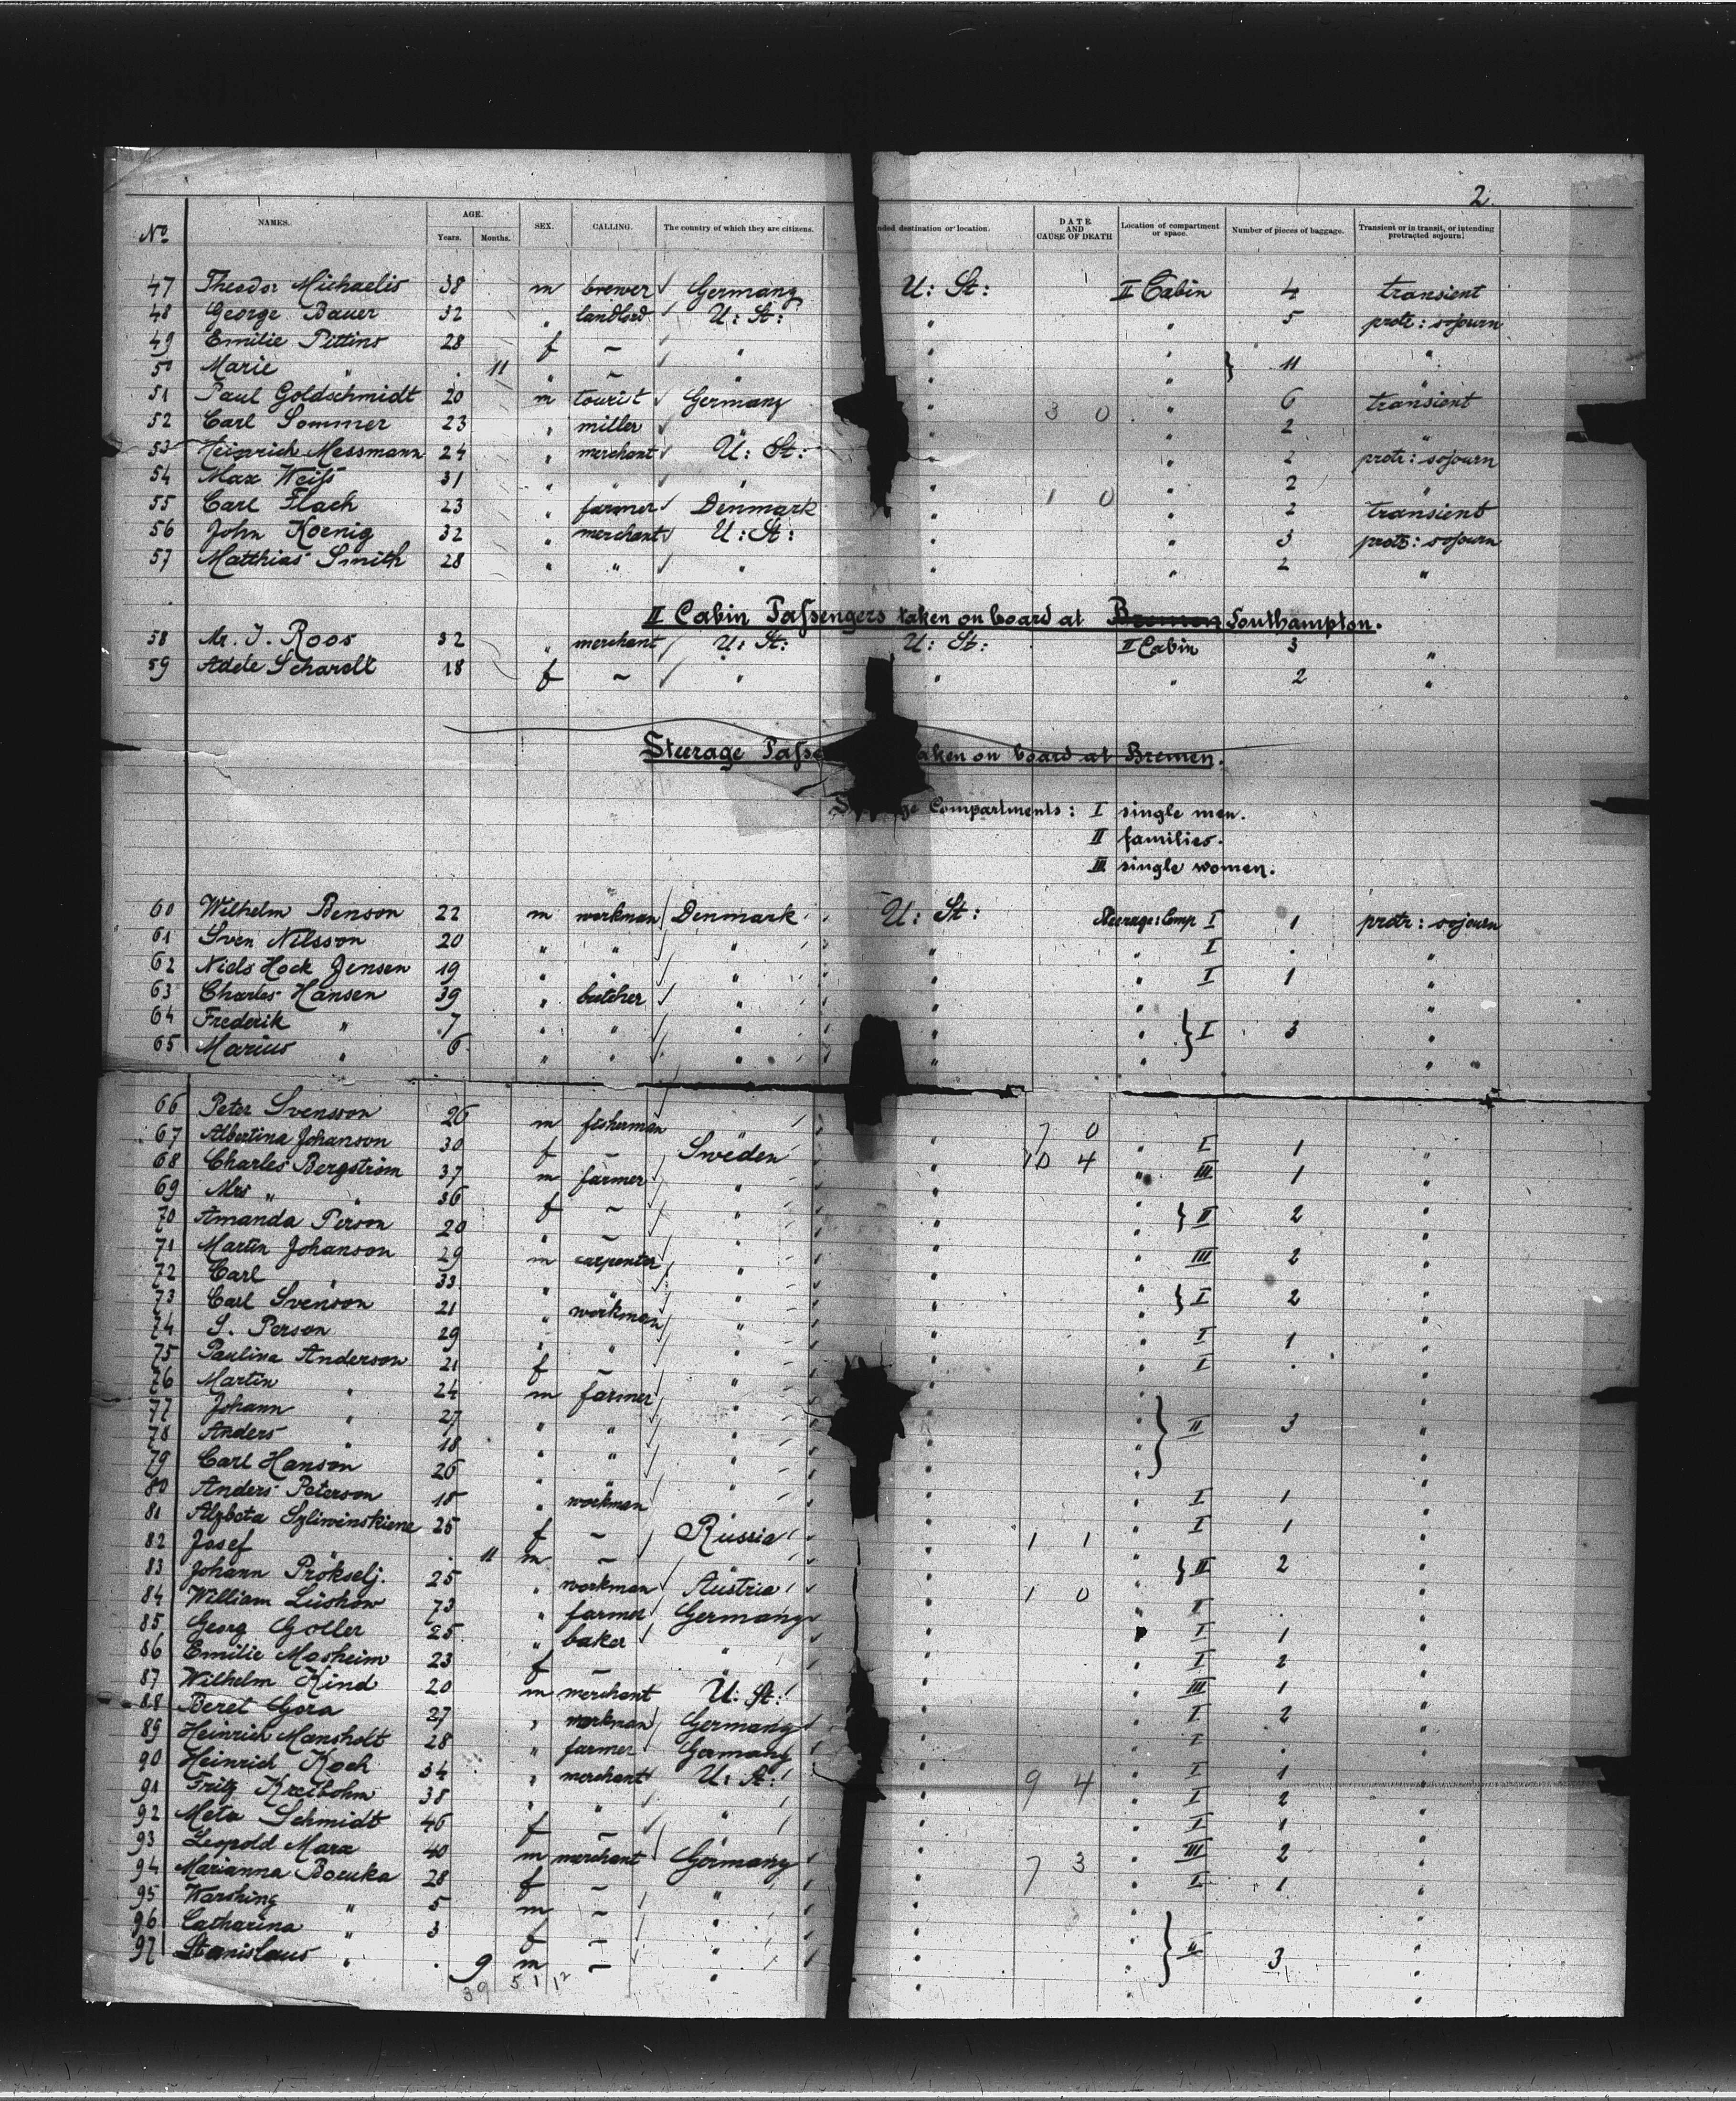 2.
No. NAMES. AGE. Years. Months. SEX. CALLING. The country of which they are citizens. nded destination or location. DATE AND CAUSE OF DEATH Location of compartment or space. Number of pieces of baggage. Transient or in transit, or intending protracted sojourn.
47 Theodor Michaelis 38 m brewer Germany U: St: II Cabin 4 transient
48 George Bauer 32 " landlord U: St: " " 5 protr: sojourn
49 Emilie Pittins 28 f – " " " "
50 Marie " . 11 " – " " " } 11 "
51 Paul Goldschmidt 20 m tourist Germany " 3 0 " 6 transient
52 Carl Sommer 23 " miller " " " 2 "
53 Heinrich Messmann 24 " merchant U: St: " " 2 protr: sojourn
54 Max Weiß 31 " " " " " 2 "
55 Carl Flach 23 " farmer Denmark " 1 0 " 2 transient
56 John Koenig 32 " merchant U: St: " " 3 protr: sojourn
57 Matthias Smith 28 " " " " " 2 "
II Cabin Paßengers taken on board at Bremen Southampton.
58 Mr. J. Roos 32 " merchant U: St: U: St: II Cabin 3 "
59 Adele Scharett 18 f – " " " 2 "
Steerage Paße aken on board at Bremen.
S ge Compartments: I single men.
II families.
III single women.
60 Wilhelm Benson 22 m workman Denmark U: St: Steerage: Comp I 1 protr: sojourn
61 Sven Nilsson 20 " " " " " I . "
62 Niels Hock Jensen 19 " " " " " I 1 "
63 Charles Hansen 39 " butcher " " " "
64 Frederik " 7 " " " " " } I 3 "
65 Marius " 6 " " " " " "
66 Peter Svensson 26 m fisherman " " 7 0 " I 1 "
67 Albertina Johanson 30 f – Sweden " 10 4 " III 1 "
68 Charles Bergström 37 m farmer " " " "
69 Mrs " " 36 f – " " " } II 2 "
70 Amanda Person 20 " – " " " III 2 "
71 Martin Johanson 29 m carpenter " " " "
72 Carl " 33 " " " " " } I 2 "
73 Carl Svenson 21 " workman " " " I 1 "
74 S. Person 29 " " " " " I . "
75 Paulina Anderson 21 f – " " " "
76 Martin " 24 m farmer " " " } II 3 "
77 Johann " 27 " " " " " "
78 Anders " 18 " " " " " "
79 Carl Hanson 26 " " " " I 1 "
80 Anders Peterson 18 " workman " " " I 1 "
81 Alzbeta Szliwinskiene 25 f – Russia " 1 1 " "
82 Josef . 11 m – " " } II 2 "
83 Johann Prökselj. 25 " workman Austria " 1 0 " II . "
84 William Lüshow 73 " farmer Germany " " I 1 "
85 Georg Goller 25 " baker " " " I 2 "
86 Emilie Mosheim 23 f – " " " III 1 "
87 Wilhelm Kind 20 m merchant U: St: " " I 2 "
88 Beret Gora 27 " workman Germany " " I . "
89 Heinrich Mansholt 28 " farmer Germany " " I 1 "
90 Heinrich Koch 34 " merchant U: St: " 9 4 " I 2 "
91 Fritz Kreibohm 38 " " " " " I 1 "
92 Meta Schmidt 46 f – " " " III 2 "
93 Leopold Marx 40 m merchant Germany " 7 3 " I 1 "
94 Marianna Bocuka 28 f – " " " "
95 Warshing " 5 m – " " " } II 3 "
96 Catharina " 3 f – " " " "
97 Stanislaus " . 9 m – " " " "
39 5 1 12